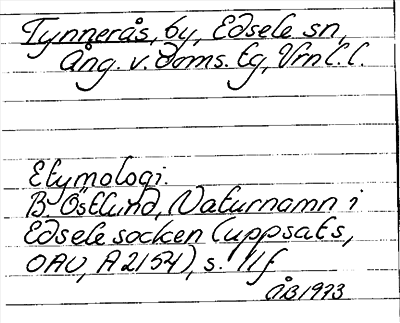 Tynnerås, by, Edsele sn,
Ång. v. doms. tg, Vrnl. l.
Etymologi.
B. Östlund, Naturnamn i
Edsele socken (uppsats,
OAU, A 2154), s. 11f
ÅB 1973